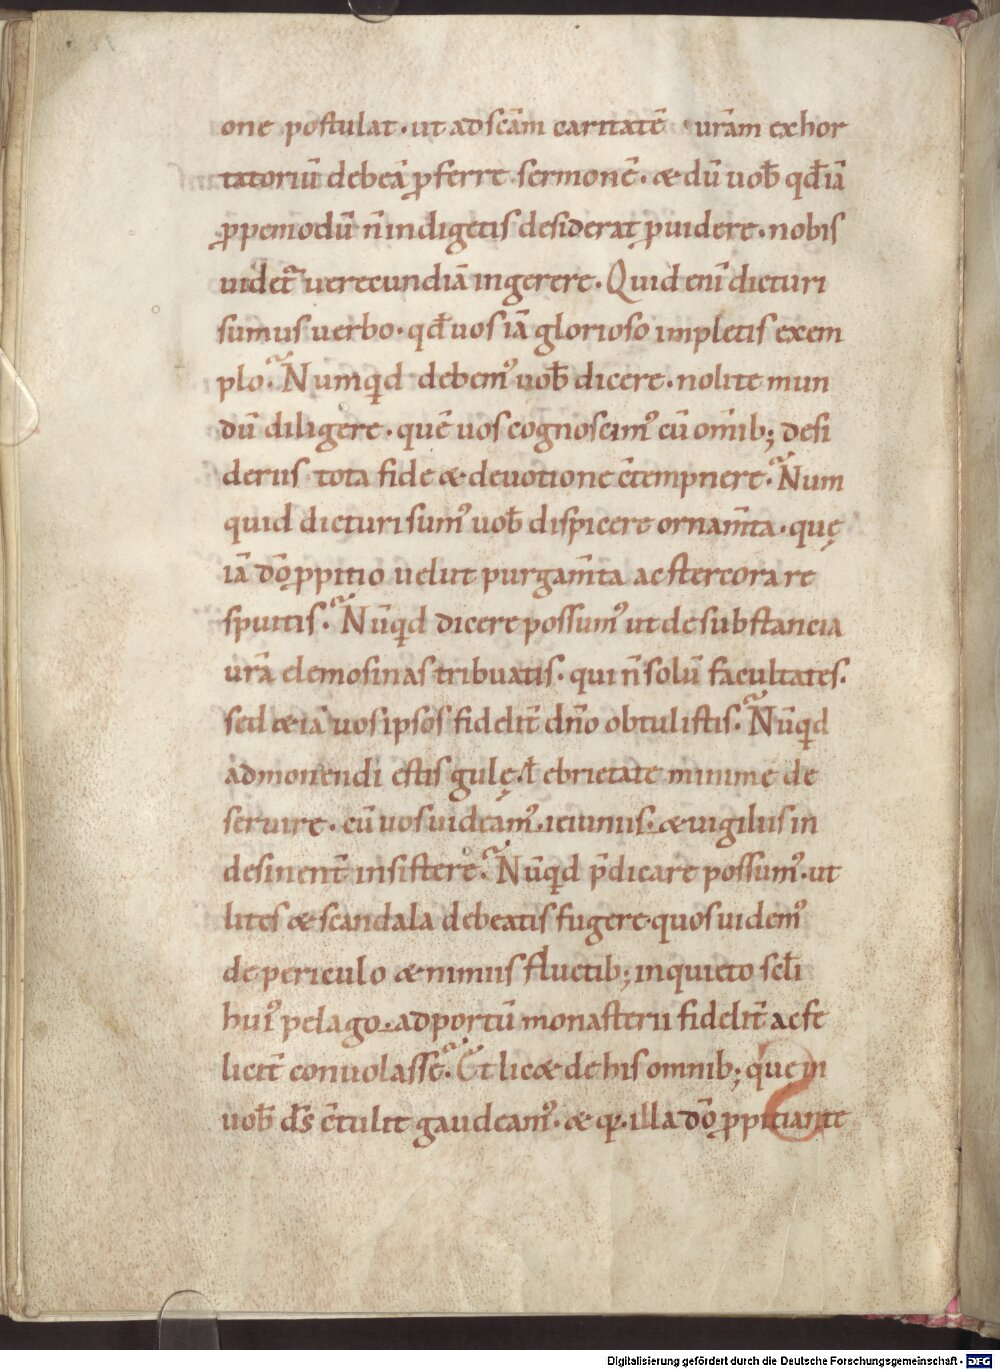 one postulat · ut ad scām caritatē · urām exhor
tatoriū debeā ꝓferre sermonē · & dū uob̄ qđ iā
ꝓpemodū n̄ indigetis desiderat ꝓuidere · nobis
uidet᷑ uerecundiā ingerere · Quid eni᷑ dicturi
sumus uerbo · qđ uos iā glorioso impletis exem
plo · Numqd debemꝰ uob̄ dicere · nolite mun
dū diligere · quē uos cognoscimꝰ cū om̄ib; desi
deriis tota fide & deuotione c̄tempnere · Num
quid dicturi sumꝰ uob̄ dispicere ornam̄ta · quę
iā dō ꝓpitio uelut purgam̄ta ac stercora re
spuitis · Nūqd dicere possumꝰ ut de substancia
urā elemosinas tribuatis · qui n̄ solū facultates ·
sed & iā uos ipsos fidelit̄ dn̄o obtulistis · Nūqd
admonendi estis gulę · ł ebrietate minime de
seruire · cū uos uideamꝰ · ieiuniis · & uigiliis in
desinent̄ insistere · Nūqd p̄dicare possumꝰ · ut
lites & scandala debeatis fugere · quos uidemꝰ
de periculo & nimiis fluctib; inquieto scl̄i
huiꝰ pelago · ad portū monasterii fidelit̄ ac fe
licit̄ conuolasse · Et lic& de his omnib; que in
uob̄ ds̄ c̄tulit gaudeamꝰ · & qꝛ · illa dō ꝓpitiante
Digitalisierung gefördert durch die Deutsche Forschungsgemeinschaft - DFG